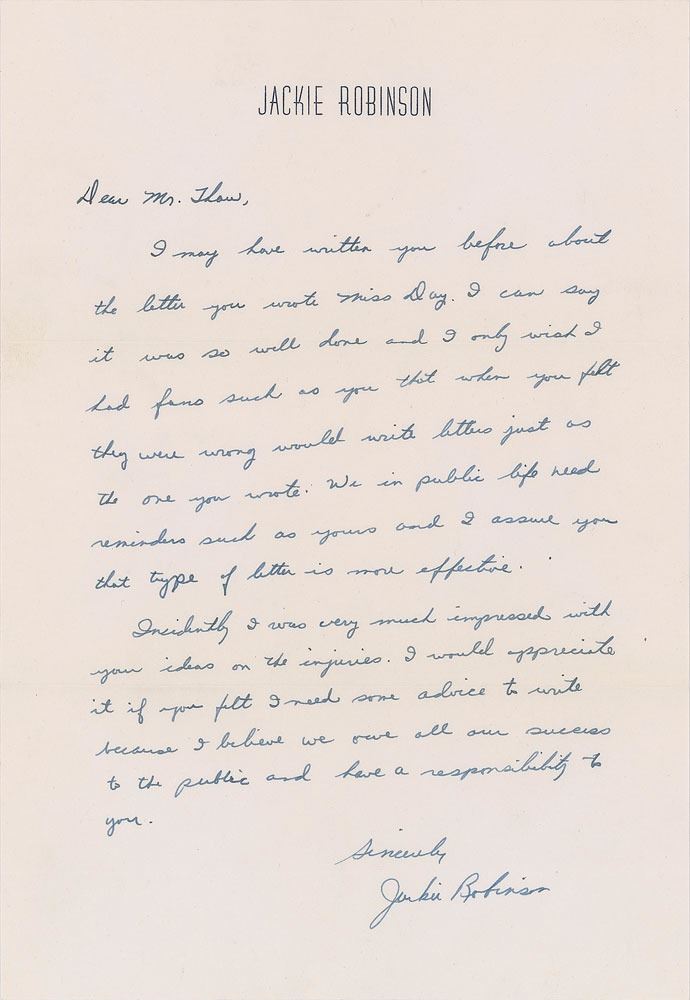 JACKIE ROBINSON
Dear Mr. Thow,
I may have written you before about
the letter you wrote Miss Day. I can say
it was so well done and I only wish I
had fans such as you that when you felt
they were wrong would write letters just as
the one you wrote. We in public life need
reminders such as yours and I assure you
that type of letter is more effective.
Incidently I was very much impressed with
your ideas on the injuries. I would appreciate
it if you felt I need some advice to write
because I believe we owe all our success
to the public and have a responsibility to
you.
Sincerely
Jackie Robinson